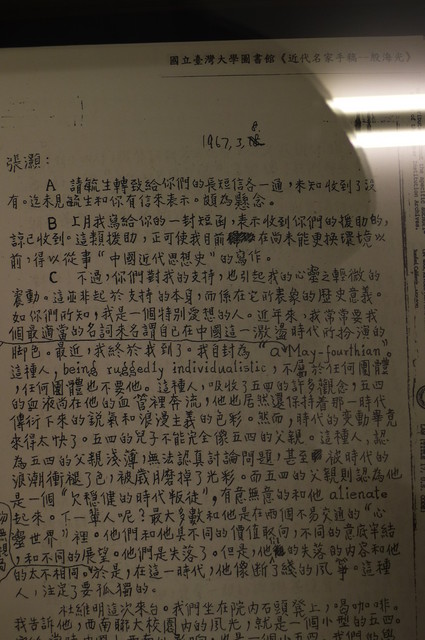 國立臺灣大學圖書館《近代名家手稿—殷海光》
1967.3.8.
張灝：
A 請毓生轉致給你們的長短信各一通，未知收到了沒
有。迄未見毓生和你有信來表示。頗為懸念。
B 上月我寫給你的一封短函，表示收到你們的援助的，
諒已收到。這類援助，正可使我目前在尚未能更換環境以
前，得以從事“中國近代思想史”的寫作。
C 不過，你們對我的支持，也引起我的心靈之輕微的
震動。這並非起於支持的本身，而係在它所表象的歷史意義。
如你們所知，我是一個特別愛想的人。近年來，我常常要找
個最適當的名詞來名謂自己在中國這一激盪時代所扮演的
腳色。最近，我終於找到了。我自封為“a May-fourthian”。
這種人，being ruggedly individualistic，不屬於任何團體
，任何團體也不要他。這種人，吸收了五四的許多觀念，五四
的血液尚在他的血管裡奔流，他也居然還保持著那一時代
傳衍下來的銳氣和浪漫主義的色彩。然而，時代的變動畢竟
來得太快了。五四的兒子不能完全像五四的父親。這種人，認
為五四的父親淺薄，無法認真討論問題，甚至被時代的
浪潮衝褪了色，被歲月磨掉了光彩。而五四的父親則認為他
是一個“欠穩健的時代叛徒”，有意無意的和他 alienate
起來。下一輩人呢？最大多數和他是在兩個不易交通的“心
靈世界”裡。他們和他具不同的價值取向，不同的意底牢結
，和不同的展望。他們是失落了。但是，他的失落的內容和他
的太不相同。於是，在這一時代，他像斷了綫的風箏。這種
人，注定了要孤獨的。
杜維明這次來台。我們坐在院內石頭凳上，喝咖啡。
我告訴他，西南聯大校園內的風光，就是一個小型的五四。